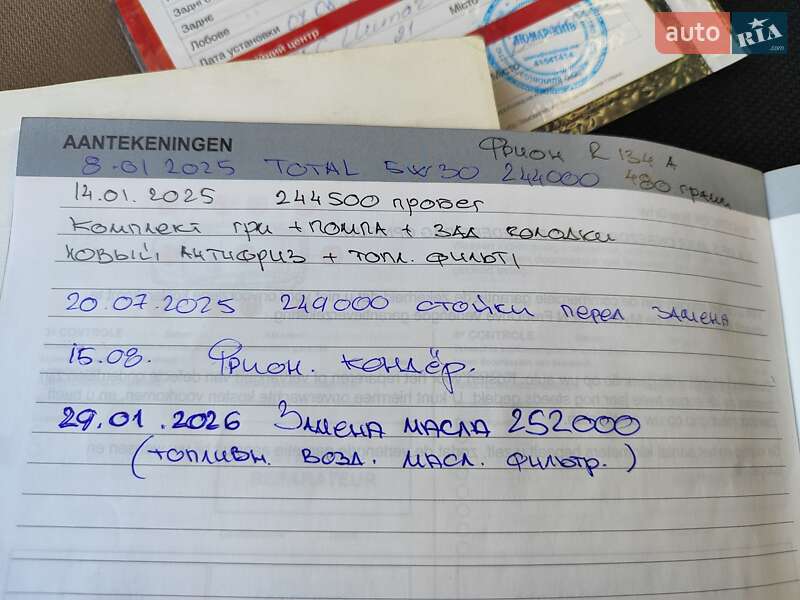 Задн
Заднє
Лобове
Дата установки
Місто
ий центр
ЛЮМАР-КИЇВ
auto RIA .com
AANTEKENINGEN
Фрион R 134 A
8.01 2025 TOTAL 5W30 244000 480 грамм
14.01.2025 244500 пробег
Комплект грм + ПОМПА + ЗАД КОЛОДКИ
НОВЫЙ АНТИФРИЗ + ТОПЛ. ФИЛЬТ
20.07.2025 249000 СТОЙКИ ПЕРЕД ЗАМЕНА
15.08. Фрион. кондёр.
29.01.2026 ЗАМЕНА МАСЛА 252000
(ТОПЛИВН. ВОЗД. МАСЛ. ФИЛЬТР.)